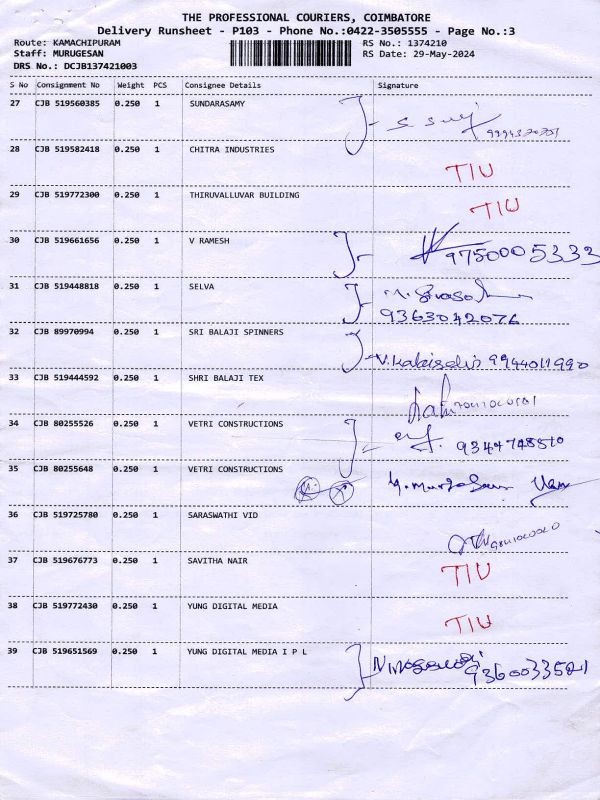 THE PROFESSIONAL COURIERS, COIMBATORE
Delivery Runsheet - P103 - Phone No.:0422-3505555 - Page No.:3
Route: KAMACHIPURAM RS No.: 1374210
Staff: MURUGESAN RS Date: 29-May-2024
DRS No.: DCJB137421003
S No Consignment No Weight PCS Consignee Details Signature
27 CJB 519560385 0.250 1 SUNDARASAMY
28 CJB 519582418 0.250 1 CHITRA INDUSTRIES TIU
29 CJB 519772300 0.250 1 THIRUVALLUVAR BUILDING TIU
30 CJB 519661656 0.250 1 V RAMESH 9750005333
31 CJB 519448818 0.250 1 SELVA
9363042076
32 CJB 89970994 0.250 1 SRI BALAJI SPINNERS 9944011990
33 CJB 519444592 0.250 1 SHRI BALAJI TEX
34 CJB 80255526 0.250 1 VETRI CONSTRUCTIONS 9344748810
35 CJB 80255648 0.250 1 VETRI CONSTRUCTIONS
36 CJB 519725780 0.250 1 SARASWATHI VID
37 CJB 519676773 0.250 1 SAVITHA NAIR TIU
38 CJB 519772430 0.250 1 YUNG DIGITAL MEDIA TIU
39 CJB 519651569 0.250 1 YUNG DIGITAL MEDIA I P L 9360033521